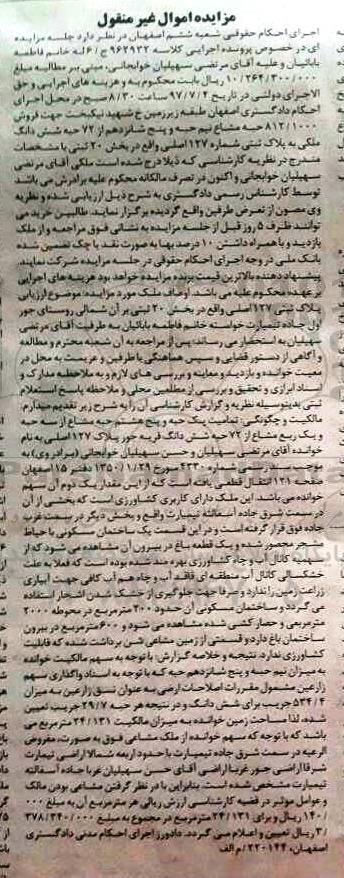 مزایده اموال غیر منقول
اجرای احکام حقوقی شعبه ششم اصفهان در نظر دارد جلسه مزایده
ای در خصوص پرونده اجرایی کلاسه ۹۶۲۹۳۲ ج/۶ له خانم فاطمه
بابائیان و علیه آقای مرتضی سهیلیان خوابجانی، مبنی بر مطالبه مبلغ
۱۰/۲۶۴/۳۰۰/۰۰۰ ریال بابت محکوم به و هزینه های اجرایی و حق
الاجرای دولتی در تاریخ ۹۷/۷/۲ ساعت ۸/۳۰ صبح در محل اجرای
احکام دادگستری اصفهان طبقه زیرزمین خ شهید نیکبخت جهت فروش
۸۱۲/۱۰۰۰ حبه مشاع نیم حبه و پنج شانزدهم از ۷۲ حبه شش دانگ
ملکی به پلاک ثبتی شماره ۱۲۷ اصلی واقع در بخش ۲۰ ثبتی با مشخصات
مندرج در نظریه کارشناسی که ذیلا درج شده است ملکی آقای مرتضی
سهیلیان خوابجانی و اکنون در تصرف مالکانه محکوم علیه برادرش می باشد
توسط کارشناس رسمی دادگستری به شرح ذیل ارزیابی شده و نظریه
وی مصون از تعرض طرفین واقع گردیده برگزار نماید. طالبین خرید می
توانند ظرف ۵ روز قبل از جلسه مزایده به نشانی فوق مراجعه و از ملک
بازدید و با همراه داشتن ۱۰ درصد بها به صورت نقد یا چک تضمین شده
بانک ملی در وجه اجرای احکام حقوقی در جلسه مزایده شرکت نمایند.
پیشنهاد دهنده بالاترین قیمت برنده مزایده خواهد بود هزینه های اجرایی
بر عهده محکوم علیه می باشد. اوصاف ملک مورد مزایده: موضوع ارزیابی
پلاک ثبتی ۱۲۷ اصلی واقع در بخش ۲۰ ثبتی بر آن شمالی روستای جور
اول جاده تیمیارت خواسته خانم فاطمه بابائیان به طرفیت آقای مرتضی
سهیلیان به استحضار می رساند: پس از مراجعه به آن شعبه محترم و مطالعه
و آگاهی از دستور قضایی و سپس هماهنگی با طرفین و عزیمت به محل در
معیت خوانده و بازدید و معاینه و بررسی های لازم و به ملاحظه مدارک و
اسناد ابرازی و تحقیق و بررسی از مطلعین محلی و ملاحظه پاسخ استعلام
ثبتی بدینوسیله نظریه و گزارش کارشناسی آن را به شرح زیر تقدیم میدارم.
مالکیت و چگونگی: تمامیت یک حبه و پنج هشتم حبه مشاع از سه حبه
و یک ربع مشاع از ۷۲ حبه شش دانگ قریه خور پلاک ۱۲۷ اصلی به نام
خوانده آقای مرتضی سهیلیان و حسن سهیلیان خوابجانی (برادر وی) به
موجب سند رسمی شماره ۴۳۳۰ مورخ ۱۳۵۰/۱/۲۹ دفتر ۱۵ اصفهان
صفحه ۱۲۱ انتقال قطعی یافته است که از این مقدار یک دوم آن سهم
خوانده می باشد. این ملک دارای کاربری کشاورزی است که بخشی از آن
در سمت شرق جاده آسفالته تیمیارت واقع و بخش دیگر در سمت غرب
جاده فوق قرار گرفته است و در این قسمت یک ساختمان مسکونی با حیاط
مشجر محصور شده و یک قطعه باغ در بیرون آن مشاهده می شود که از
سهمیه کانال آب و چاه کشاورزی بهره مند شده بوده است که فعلا به علت
خشکسالی کانال آب منطقه ای فاقد آب و چاه هم آب کافی جهت آبیاری
زراعت زمین را ندارد و صرفا جهت جلوگیری از خشک شدن اشجار استفاده
می گردد و ساختمان مسکونی آن حدود ۲۰۰ مترمربع در محوطه ۲۰۰۰
مترمربعی و حصار کشی شده مشاهده می شود و ۶۰۰ مترمربع در بیرون
ساختمان باغ دارد و قسمتی از زمین مشاعی شن برداشت شده که قابلیت
کشاورزی ندارد. نتیجه و خلاصه گزارش: با توجه به سهم مالکیت خوانده
به میزان نیم حبه و پنج شانزدهم حبه که با توجه به اسناد واگذاری سهم
زارعین مشمول مقررات اصلاحات ارضی به عنوان نسق زارعین به میزان
۵۳۴/۴ جریب برای شش دانگ و در نتیجه هر حبه ۲۹/۷ جریب تعیین
شده، لذا مساحت زمین خوانده به میزان مالکیت ۲۴/۱۳۱ مترمربع می
باشد که با توجه که سهم خوانده از ملک مشاعی فوق به صورت، مفروض
الرعیه در سمت شرق جاده تیمیارت با حدود اربعه شمالا اراضی تیمارت
شرقا اراضی جور غربا اراضی آقای حسن سهیلیان غربا جاده آسفالته
تیمیارت مشخص شده است. بنابراین با در نظر گرفتن مشاعی بودن مالک
و عوامل موثر در قضیه کارشناسی ارزش ریالی هر مترمربع آن به مبلغ ۰۰۰
/۱۴۰ ریال و برای ۲۴/۱۳۱ مترمربع در مجموع به مبلغ ۳۷۸/۳۴۰/۰۰۰
/۳ ریال تعیین و اعلام می گردد. دادورز اجرای احکام مدنی دادگستری
اصفهان، ۲۲۰۱۴۴/م الف